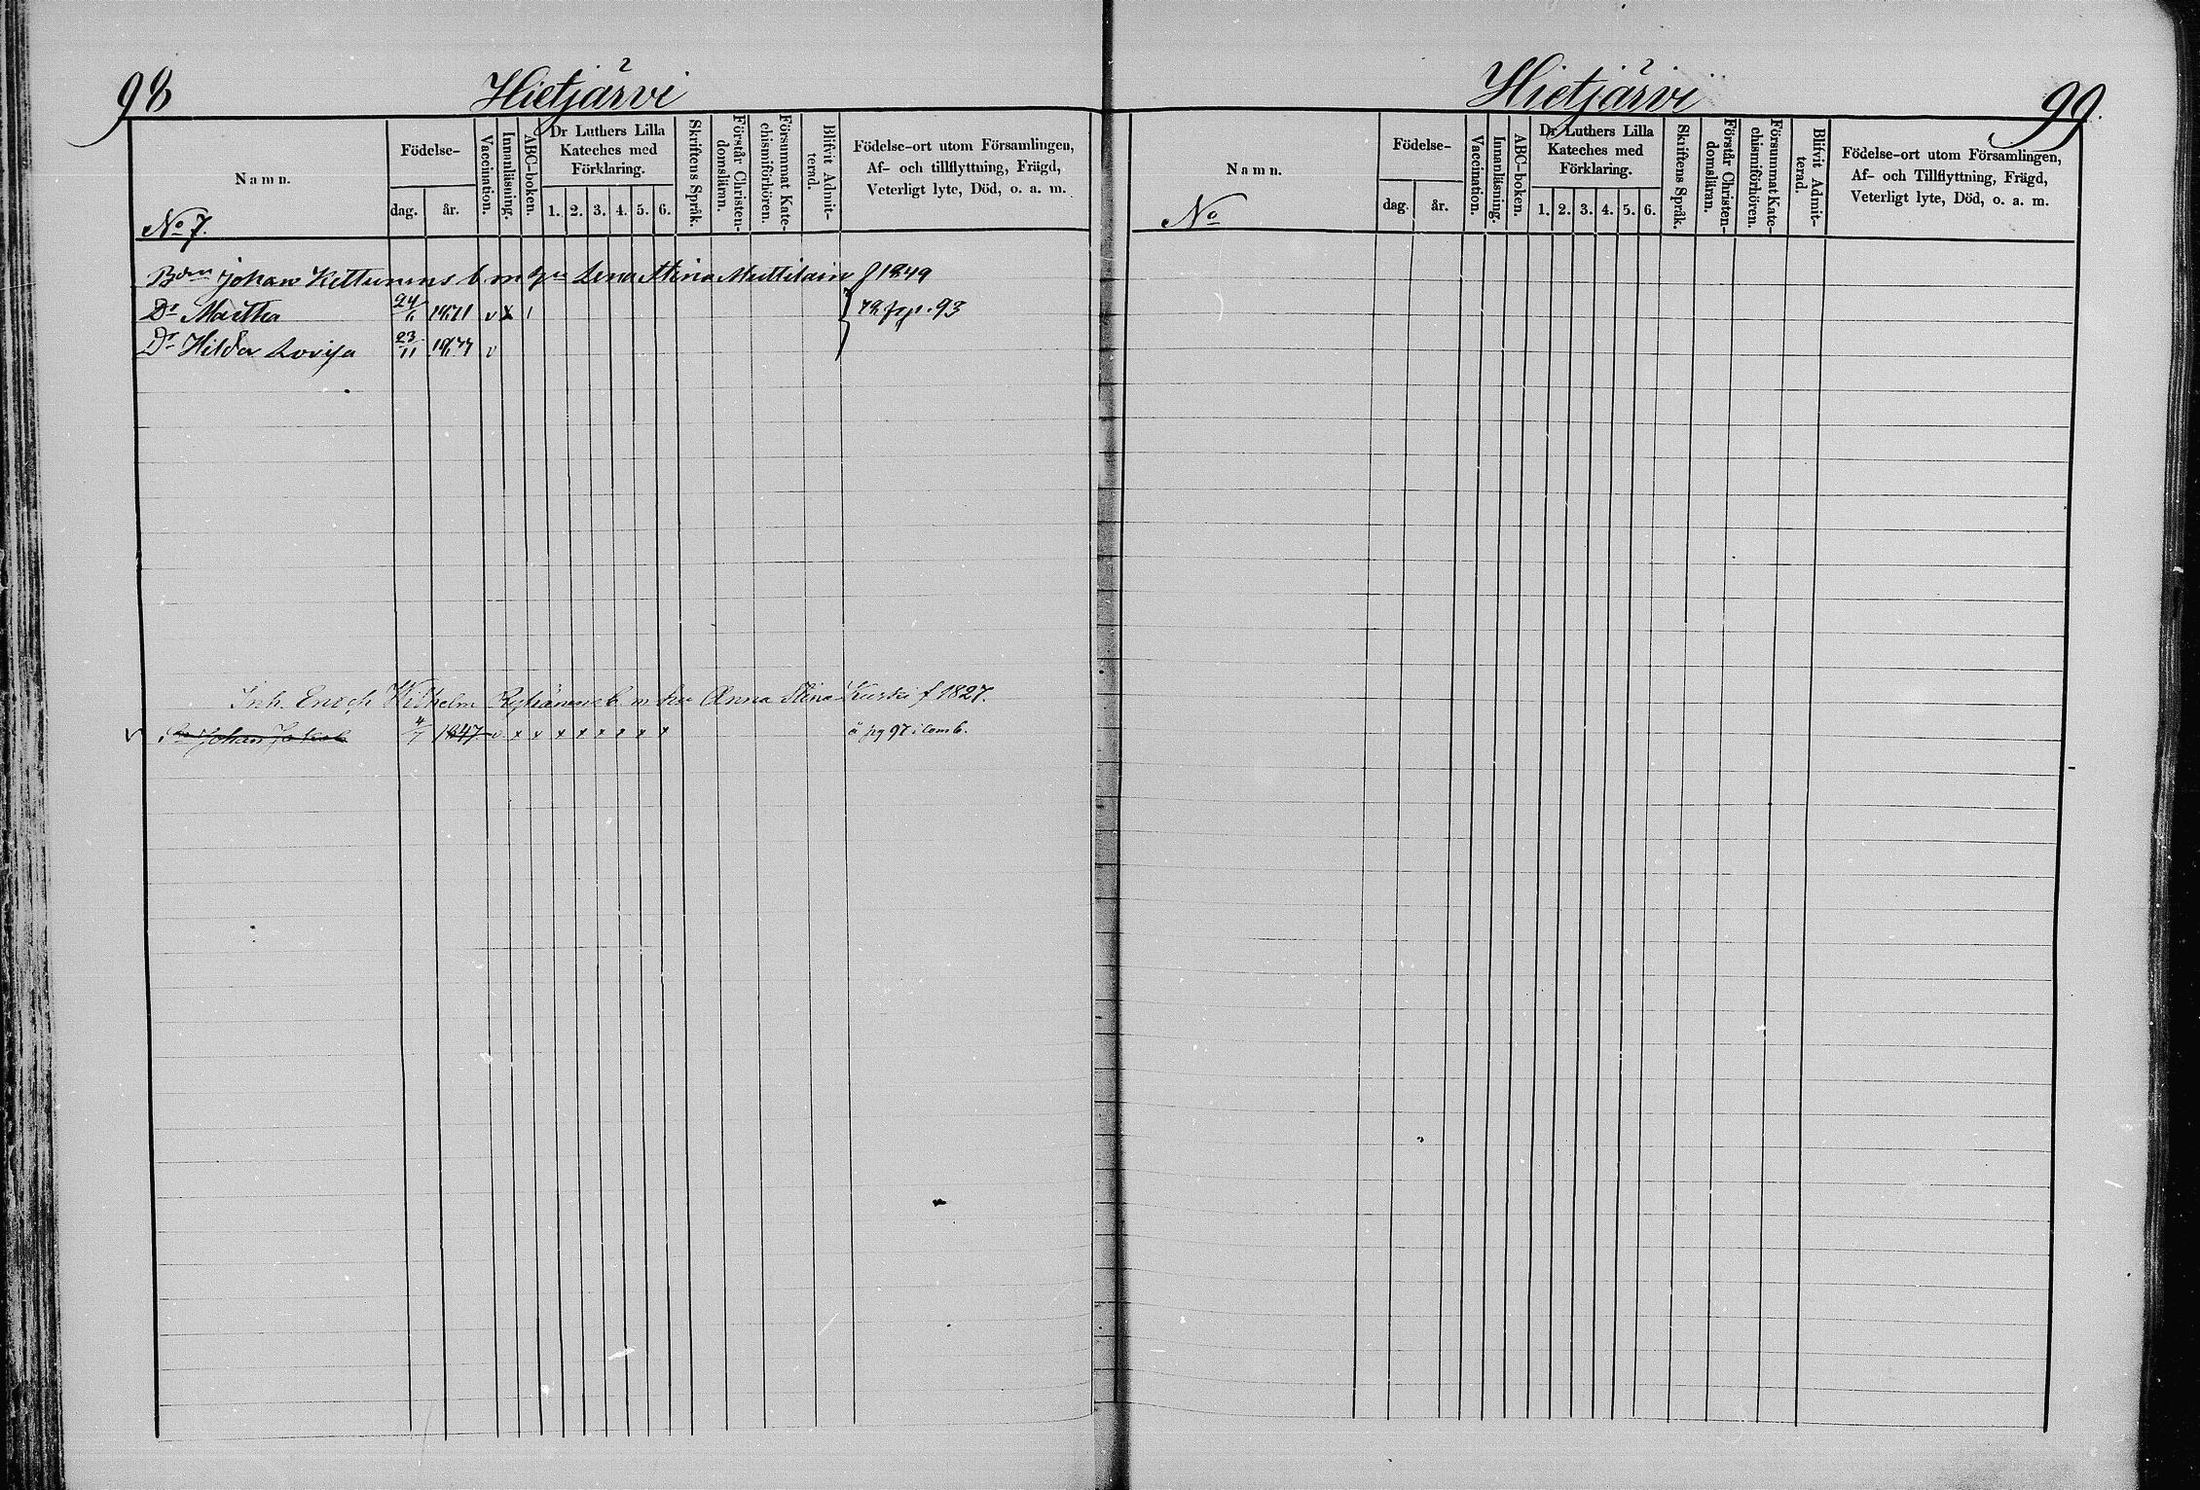 98
Hietjärvi
Namn.
Födelse-
dag.
år.
Vaccination.
Innanläsning.
ABC-boken.
Dr Luthers Lilla
Kateches med
Förklaring.
1. 2. 3. 4. 5. 6.
Skriftens Språk.
Förstår Christen-
domsläran.
Försummat Kate-
chismiförhören.
Blifvit Admit-
terad.
Födelse-ort utom Församlingen,
Af- och tillflyttning, Frägd,
Veterligt lyte, Död, o. a. m.
No 7.
Bdn Johan Kettunens b m Lena Stina f 1849
Dr Martha 24/ 1871 v x 93
Dr Hilda Lovisa 23/11 1877 v
Inh. Erich Wilhelm b m hu Anna Stina Kurki f 1827.
v Johan Jakob 4/7 1847 v x x x x x x x x å pg 97 i Comb.
Hietjärvi
99.
Namn.
No
Födelse-
dag.
år.
Vaccination.
Innanläsning.
ABC-boken.
Dr Luthers Lilla
Kateches med
Förklaring.
1. 2. 3. 4. 5. 6.
Skriftens Språk.
Förstår Christen-
domsläran.
Försummat Kate-
chismiförhören.
Blifvit Admit-
terad.
Födelse-ort utom Församlingen,
Af- och Tillflyttning, Frägd,
Veterligt lyte, Död, o. a. m.